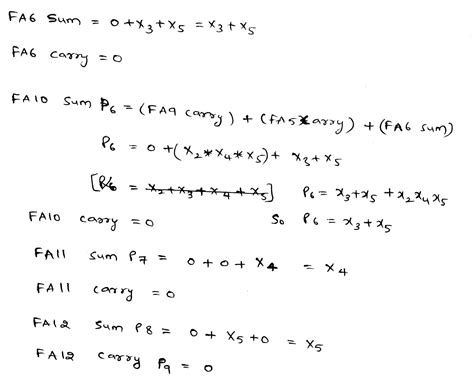 FA6 Sum = 0+x3+x5 = x3+x5
FA6 carry = 0
FA10 Sum P6 = (FA9 carry) + (FA5 carry) + (FA6 sum)
P6 = 0+(x2*x4*x5)+ x3+x5
[P6 = x2+x3+x4+x5] P6 = x3+x5+x2x4x5
FA10 carry = 0 So P6 = x3+x5
FA11 sum P7 = 0+0+x4 = x4
FA11 carry = 0
FA12 sum P8 = 0+x5+0 = x5
FA12 carry P9 = 0